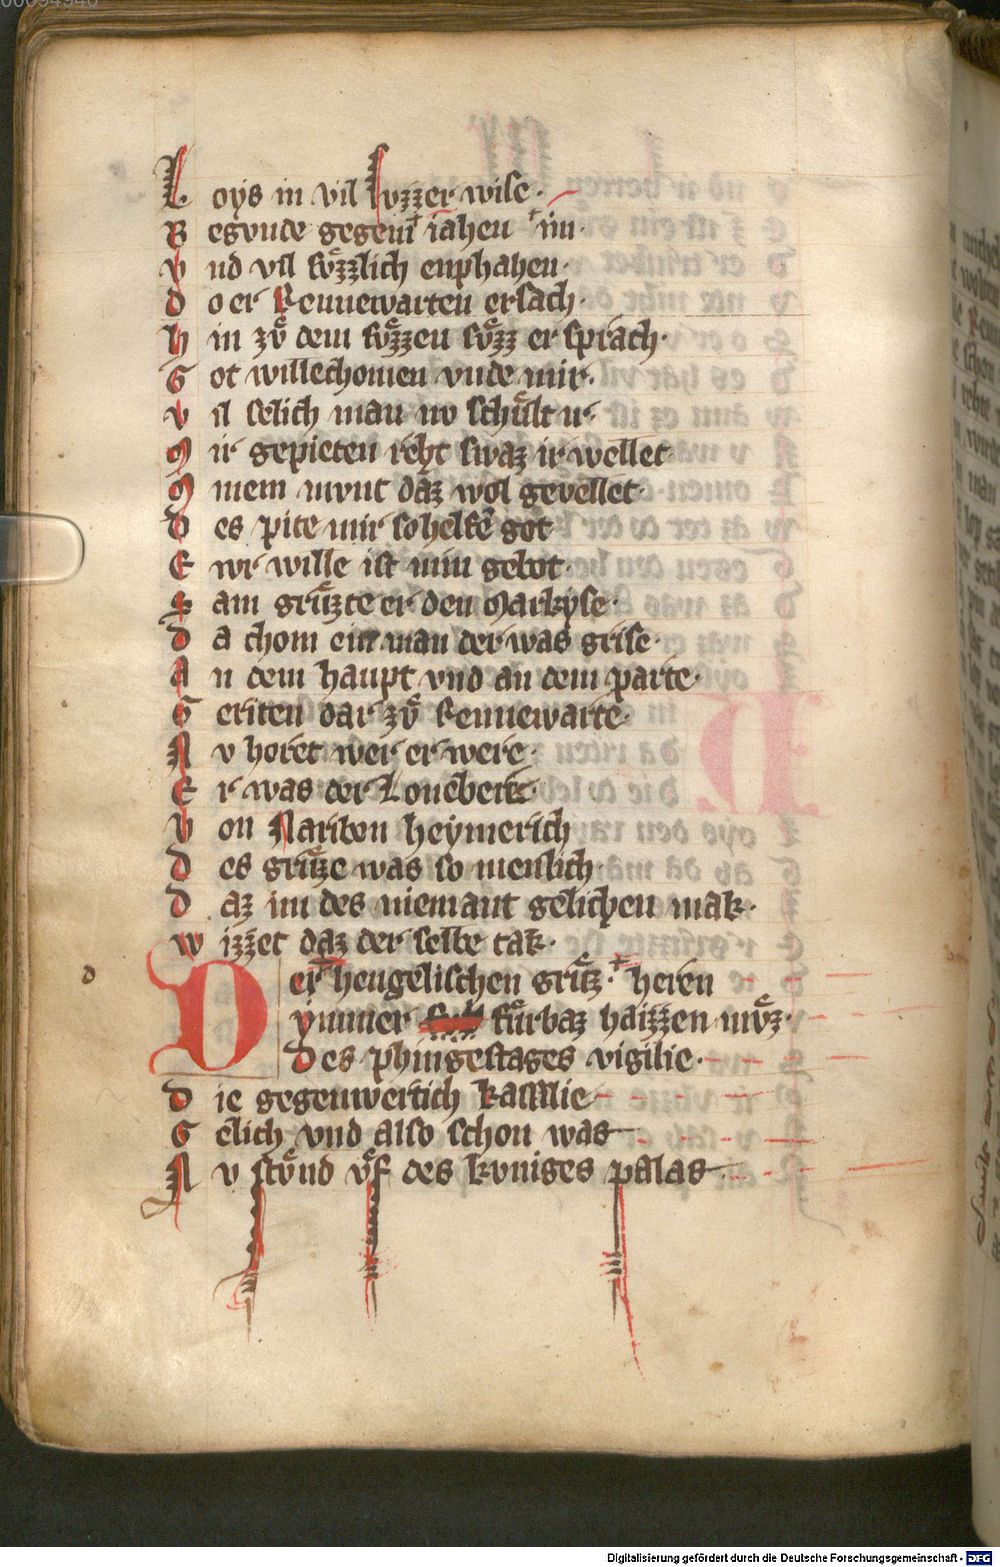 Loys in vil svzzer wise·
Begvnde gegein iahen im·
vnd vil svͦzzlich enphahen·
do er Rennewarten ersach·
hin zvͦ dem svͦzzen svͦzz er sprach·
Got willechomen vnde mir·
vil selich man nv schult ir
Mir gepieten reht swaz ir wellet
Minem mvnt daz wol gevellet·
des pite mir so helfe got
Ewr wille ist min gebot·
sam gruͤzte er den Markyse·
da chom ein man der was grise·
An dem haupt vnd an dem parte·
Geriten dar zvͦ Rennewarte·
Nv horet wer er were·
Er was der
von Naribon heymerich
des gruͤze was so menlich·
daz im des niemant gelichen mak·
wizzet daz der selbe tak·
Der hengelischen gruͤz· heren
ymmer fuͤrbaz haizzen mvͤz·
Des phingestages vigilie·
die gegenwertich kamilie
Gelich vnd also schon was
Nv stvͦnd vͦf des kvniges palas
d
Digitalisierung gefördert durch die Deutsche Forschungsgemeinschaft - DFG